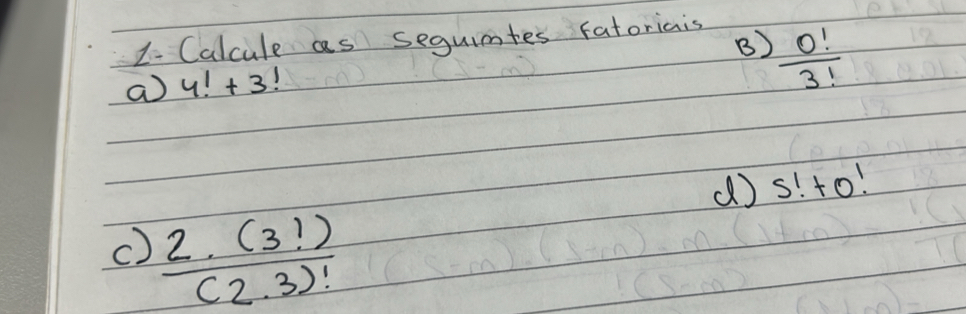 1- Calcule as seguintes fatoriais
a) 4! + 3!
B) 0!
3!
c) 2. (3!)
(2.3)!
d) 5! + 0!